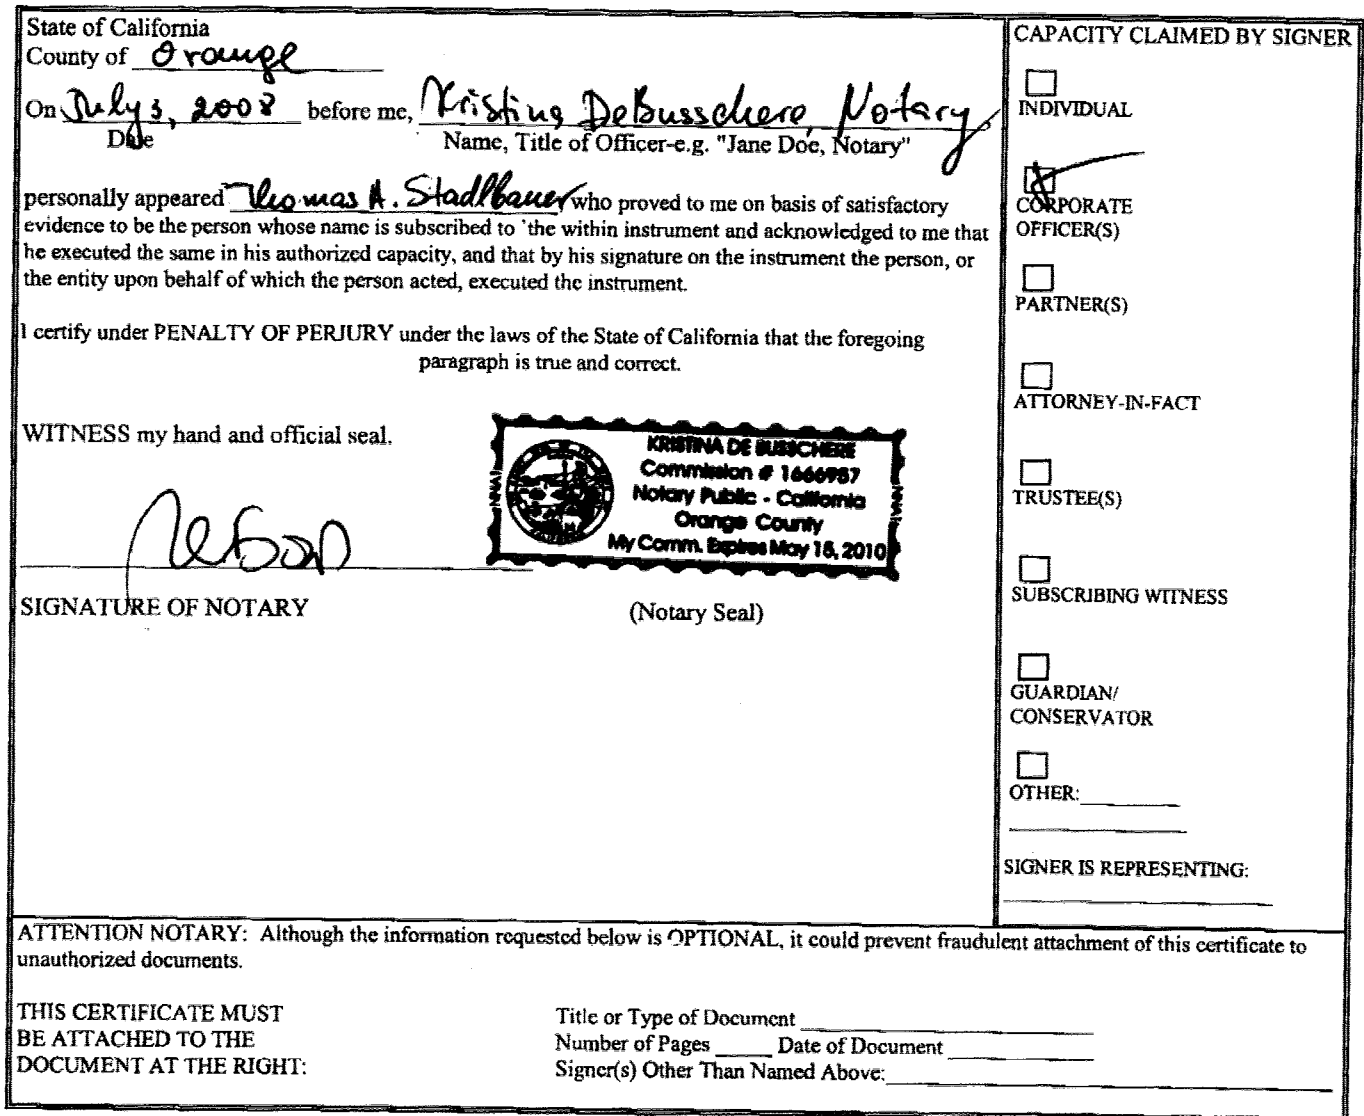 State of California
County of Orange
On July 3, 2008 before me, Kristina DeBusschere, Notary,
Date Name, Title of Officer-e.g. "Jane Doe, Notary"
personally appeared Thomas A. Stadlbauer who proved to me on basis of satisfactory
evidence to be the person whose name is subscribed to 'the within instrument and acknowledged to me that
he executed the same in his authorized capacity, and that by his signature on the instrument the person, or
the entity upon behalf of which the person acted, executed the instrument.
I certify under PENALTY OF PERJURY under the laws of the State of California that the foregoing
paragraph is true and correct.
WITNESS my hand and official seal.
KRISTINA DE BUSSCHERE
Commission # 1666957
Notary Public - California
Orange County
My Comm. Expires May 15, 2010
NNA1
NNA1
SIGNATURE OF NOTARY
(Notary Seal)
CAPACITY CLAIMED BY SIGNER
INDIVIDUAL
CORPORATE
OFFICER(S)
PARTNER(S)
ATTORNEY-IN-FACT
TRUSTEE(S)
SUBSCRIBING WITNESS
GUARDIAN/
CONSERVATOR
OTHER:
SIGNER IS REPRESENTING:
ATTENTION NOTARY: Although the information requested below is OPTIONAL, it could prevent fraudulent attachment of this certificate to
unauthorized documents.
THIS CERTIFICATE MUST
BE ATTACHED TO THE
DOCUMENT AT THE RIGHT:
Title or Type of Document
Number of Pages Date of Document
Signer(s) Other Than Named Above: